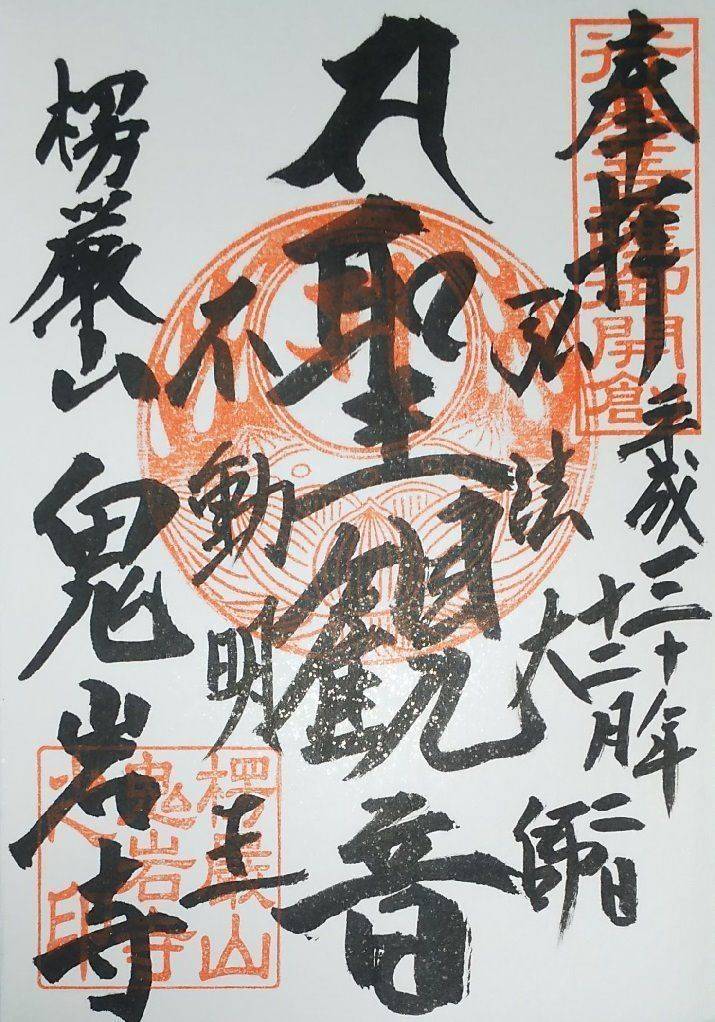 奉拝
平成三十年
十二月
二日
弘法大師
聖観音
不動明王
楞厳山
鬼岩寺
行基菩薩御開創
楞厳山
鬼岩寺
之印